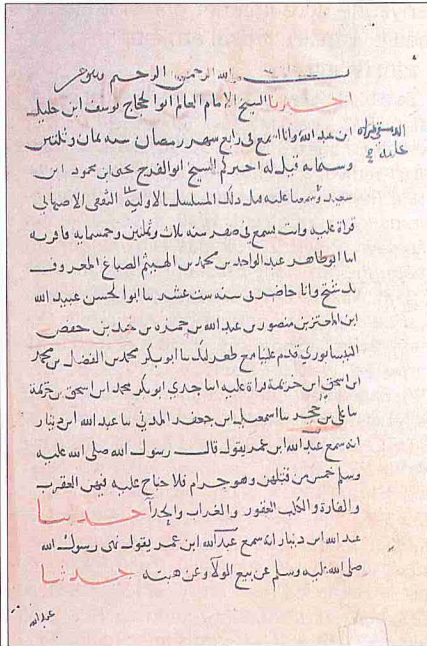 بسم الله الرحمن الرحيم
اخبرنا الشيخ الامام العالم ابو الحجاج يوسف ابن خليل
الدمشقي قراة عليه
ابن عبد الله وانا اسمع في رابع شهر رمضان سنه ثمان وثلثين
وستمايه قيل له اخبركم الشيخ ابو الفرج يحيى بن محمود ابن
سعيد وسمعنا عليه قبل ذلك المسلسل بالاولية الثقفي الاصبهاني
قراة عليه وانت تسمع في صفر سنه ثلاث وثمنين وخمسمايه فاقربه
انا ابو طاهر عبد الواحد بن محمد بن الهيثم الصباغ المعروف
بدشتج وانا حاضر في سنه ست عشر ثنا ابو الحسن عبيد الله
ابن المعتز بن منصور بن عبد الله بن حمزه بن
النيسابوري قدم علينا مع طغرلبك ثنا ابو بكر محمد بن الفضل بن محمد
ابن اسحق ابن خزيمة قراة عليه انا جدي ابو بكر محمد ابن اسحق بن خزيمة
ثنا علي بن حجر ثنا اسمعيل ابن جعفر المدني ثنا عبد الله ابن دينار
انه سمع عبد الله ابن عمر يقول قال رسول الله صلى الله عليه
وسلم خمس من قتلهن وهو حرام فلا جناح عليه فيهن العقرب
والفارة والكلب العقور والغراب والحدأ حدثنا
عبد الله ابن دينار انه سمع عبد الله ابن عمر يقول نهى رسول الله
صلى الله عليه وسلم عن بيع الولاء وعن هبته حدثنا
عبد الله